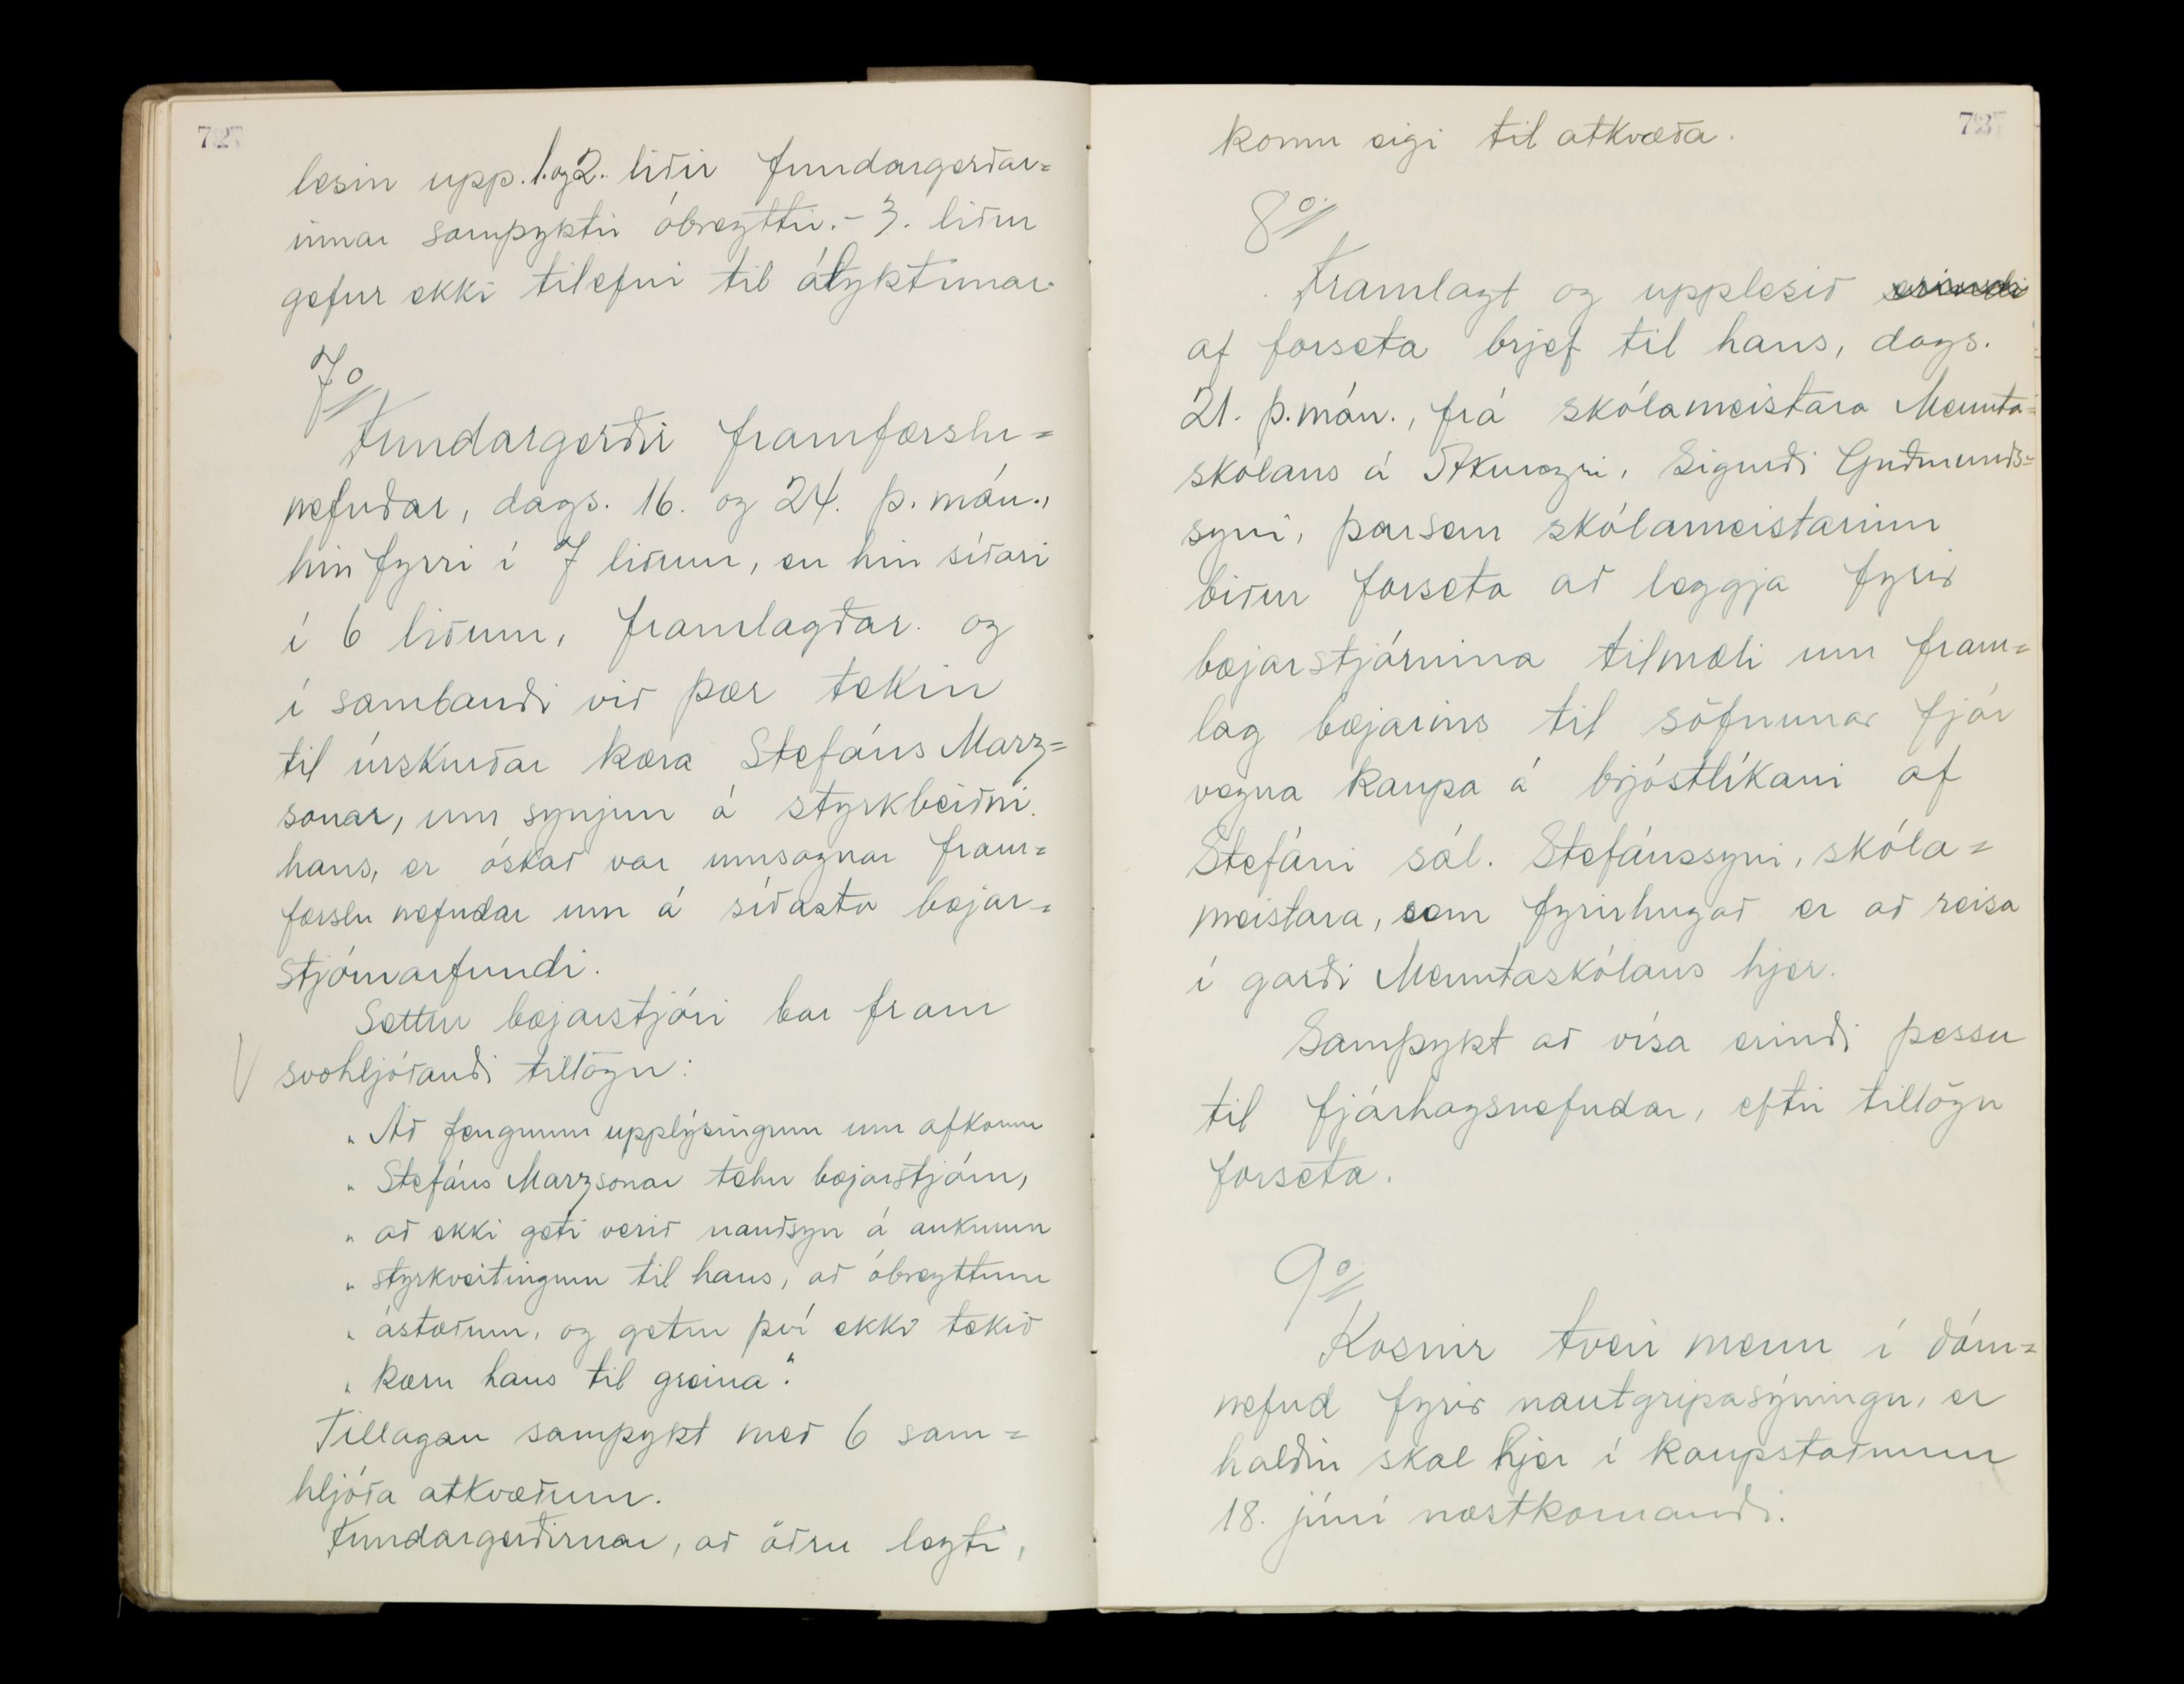 lesin upp. 1. og 2. liðir fundargerðar=
innar samþyktir óbreyttir. - 3. liður
gefur ekki tilefni til ályktunar.
7º/
Fundargerðir framfærslu=
nefndar, dags. 16. og 24. þ. mán.,
hin fyrri í 7 liðum, en hin síðari
í 6 liðum, framlagðar. og
í sambandi við þær tekin
til úrskurðar kæra Stefáns Marz=
sonar, um synjun á styrkbeiðni
hans, er óskað var umsagnar fram=
færslu nefndar um á síðasta bæjar=
stjórnarfundi.
Settur bæjarstjóri bar fram
svohljóðandi tillögu:
„ Að fengnum upplýsingum um afkomu
„ Stefáns Marzsonar telur bæjarstjórn,
„ að ekki geti verið nauðsyn á auknum
„ styrkveitingum til hans, að óbreyttum
„ ástæðum, og getur því ekki tekið
„ kæru hans til greina".
Tillagan samþykt með 6 sam=
hljóða atkvæðum.
Fundargerðirnar, að öðru leyti,
komu eigi til atkvæða.
8º/
Framlagt og upplesið erindi
af forseta brjef til hans, dags.
21. þ.mán., frá skólameistara Mennta=
skólans á Akureyri, Sigurði Guðmunds=
syni, þarsem skólameistarinn
biður forseta að leggja fyrir
bæjarstjórnina tilmæli um fram=
lag bæjarins til söfnunar fjár
vegna kaupa á brjóstlíkani af
Stefáni sál. Stefánssyni, skóla=
meistara, sem fyrirhugað er að reisa
í garði Menntaskólans hjer.
Samþykt að vísa erindi þessu
til fjárhagsnefndar, eftir tillögu
forseta.
9º/
Kosnir tveir menn í dóm=
nefnd fyrir nautgripasýningu, er
haldin skal hjer í kaupstaðnum
18. júní næstkomandi.